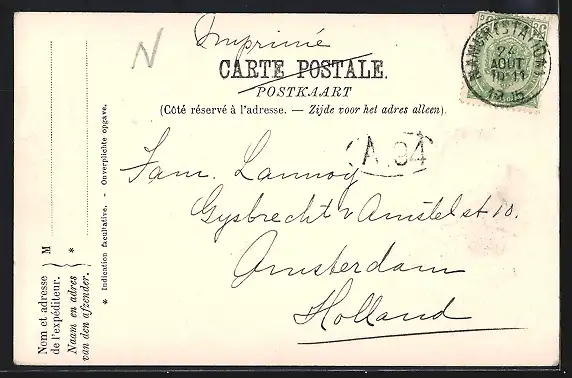 N
Imprimé
CARTE POSTALE.
POSTKAART
(Côté réservé à l'adresse. — Zijde voor het adres alleen).
NAMUR (STATION)
24
AOUT
10-11
A. 94
Fam. Lannoy
Gysbrecht v Amstelst 10.
Amsterdam
Holland
* Indication facultative. - Onverplichte opgave.
M
*
Nom et adresse
de l'expéditeur.
Naam en adres
van den afzender.